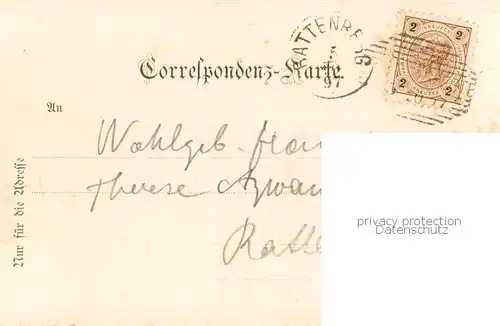 RATTENBERG
5
97
2 KREUZER 2
2 KREUZER 2
Correspondenz-Karte.
An
Wohlgeb.
Therese
Ratte
Nur für die Adresse
privacy protection
Datenschutz